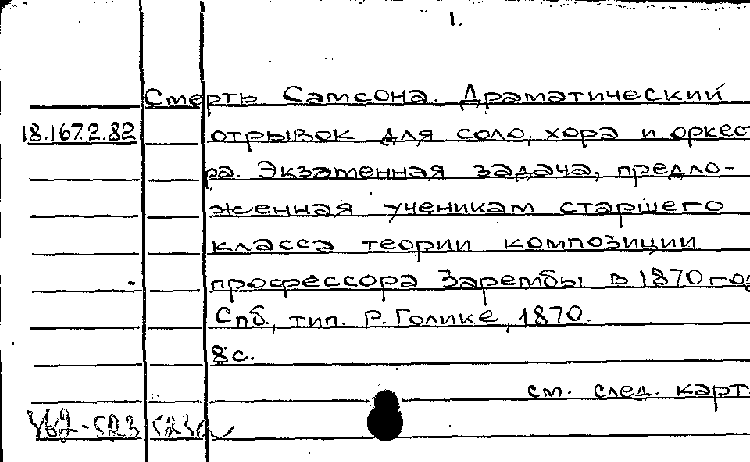 1.
Смерть Самсона. Драматический
18.167.2.82 отрывок для соло, хора и оркест
ра. Экзаменная задача, предло-
женная ученикам старшего
класса теории композиции
профессора Зарембы в 1870 год
Спб, тип. Р. Голике, 1870.
8с.
см. след. карт.